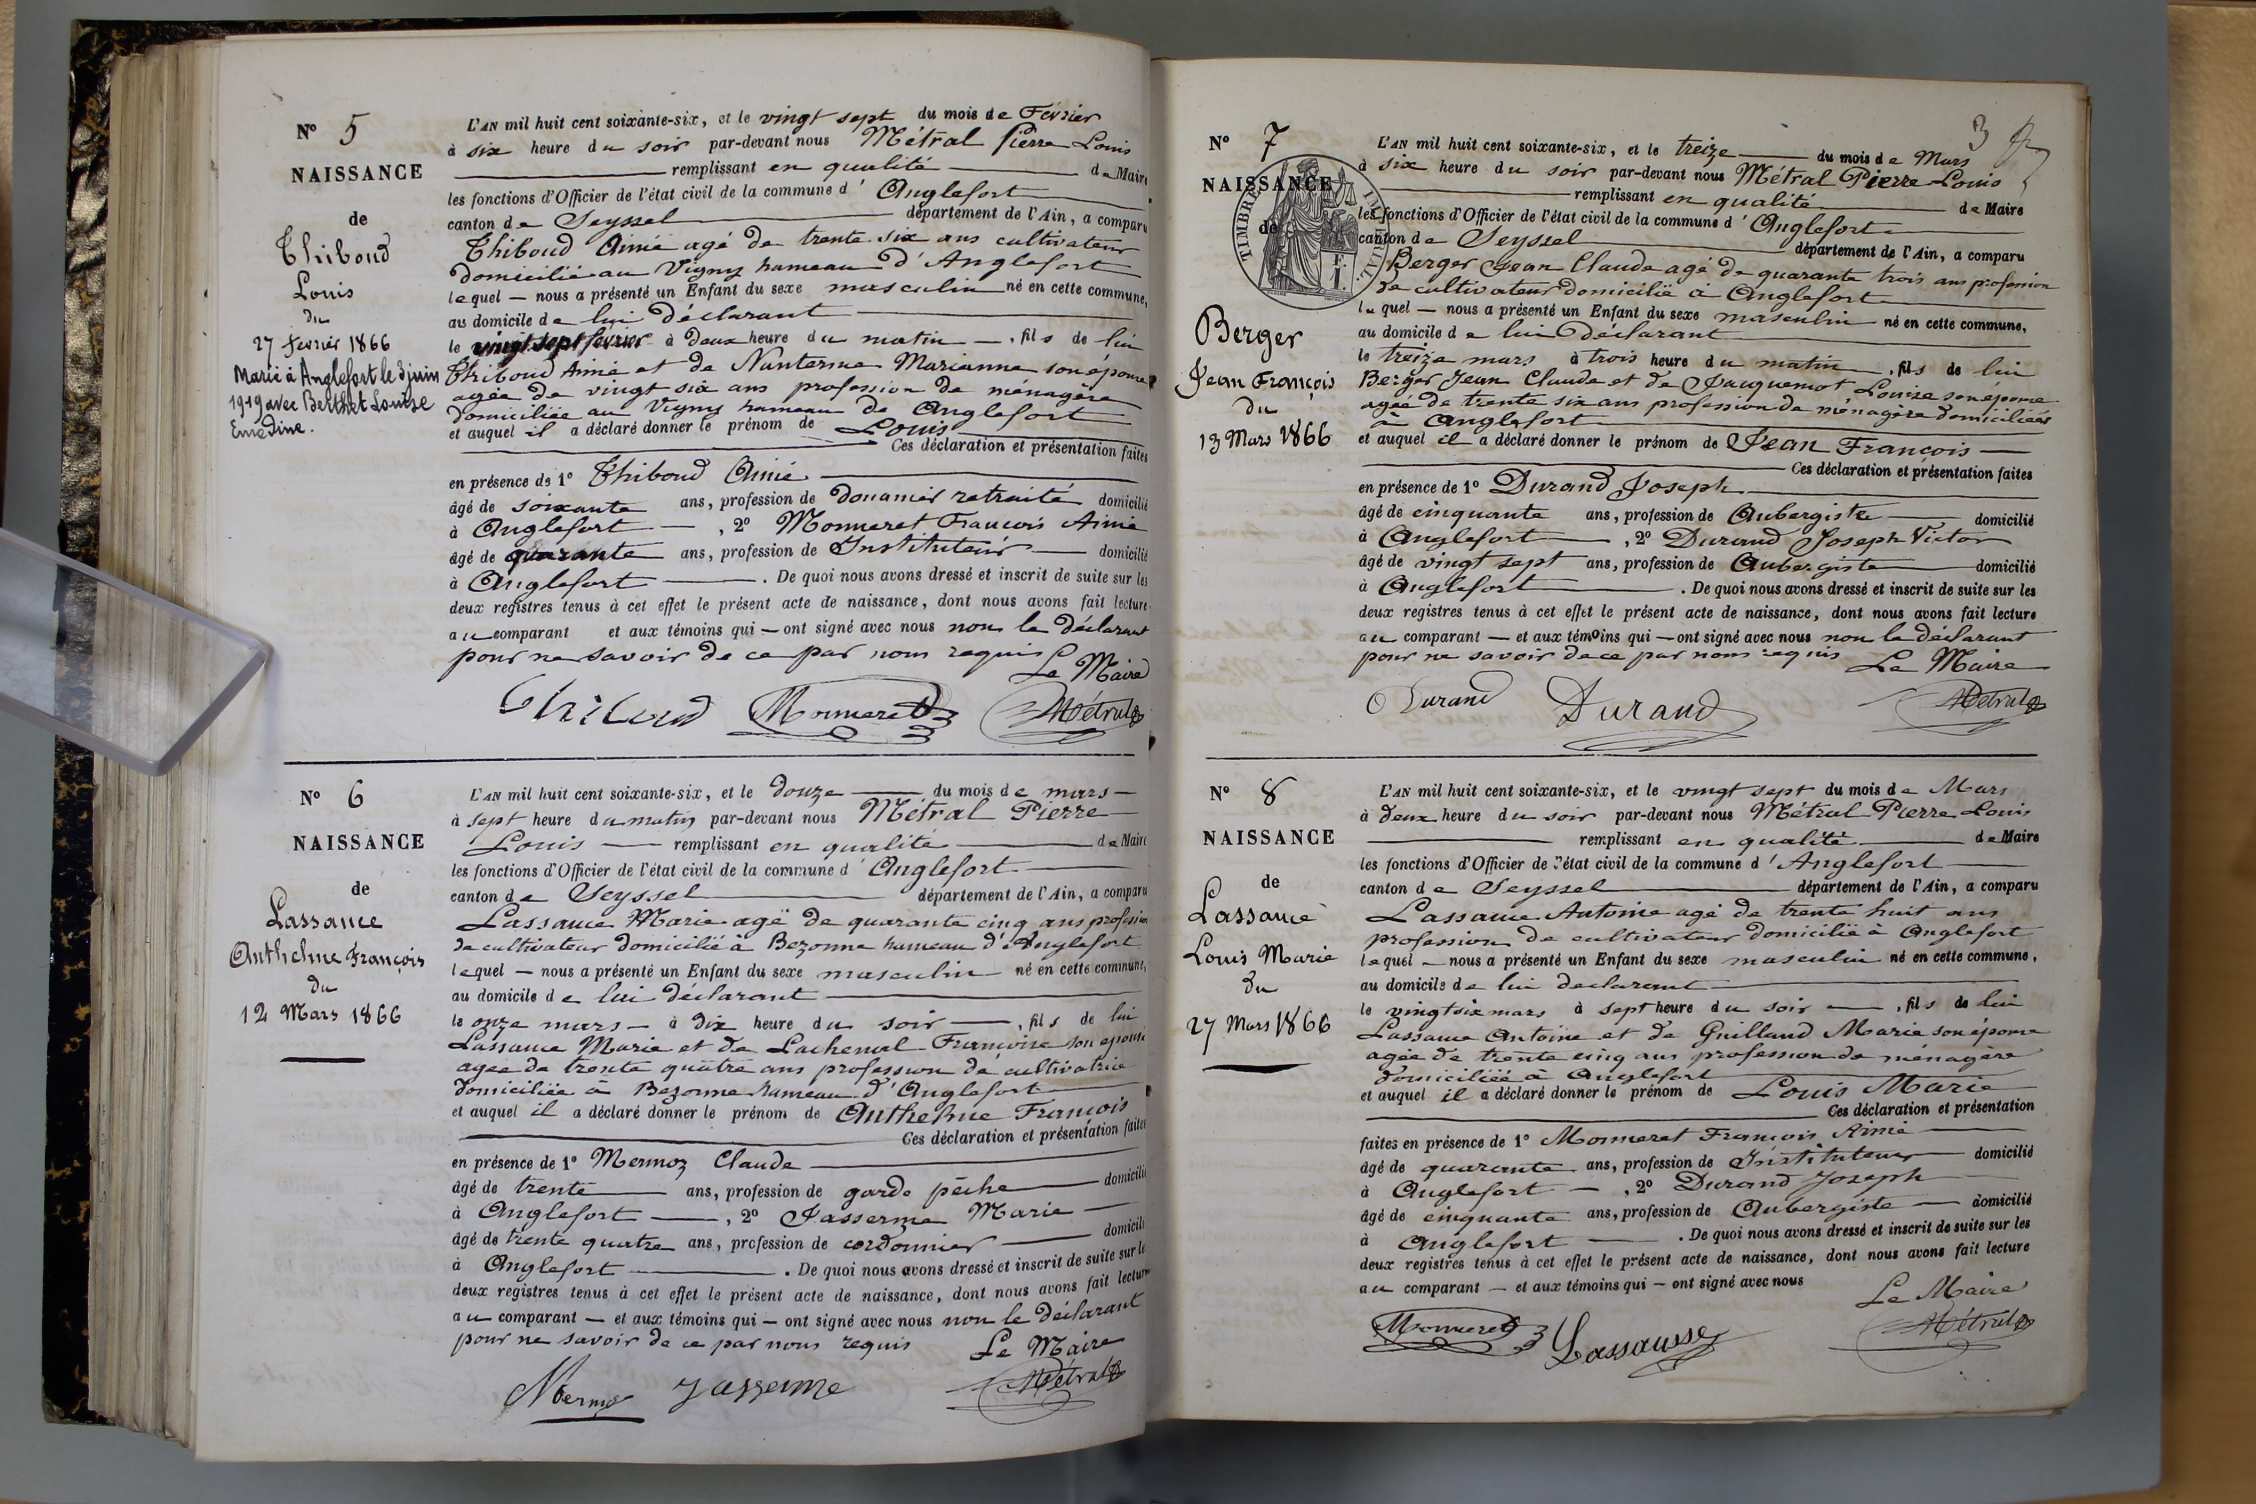 N° 5
NAISSANCE
de
Thiboud
Louis
du
27 fevrier 1866
Marié à Anglefort le 3 juin
1919 avec Berthet Louise
Emedine.
L'AN mil huit cent soixante-six, et le vingt sept du mois de Février
à six heure du soir par-devant nous Métral Pierre Louis
remplissant en qualité de Maire
les fonctions d'Officier de l'état civil de la commune d' Anglefort
canton de Seyssel département de l'Ain, a comparu
Thiboud Aimé agé de trente six ans cultivateur
domicilié au Vigny hameau d'Anglefort
lequel — nous a présenté un Enfant du sexe masculin né en cette commune,
au domicile de lui déclarant
le vingt sept février à deux heure du matin —, fils de lui
Thiboud Aimé et de Nanterme Marianne son épouse
agée de vingt six ans profession de ménagère
domiciliée au Vigny hameau de Anglefort
et auquel il a déclaré donner le prénom de Louis
Ces déclaration et présentation faites
en présence de 1° Thiboud Aimé
âgé de soixante ans, profession de douanier retraité domicilié
à Anglefort —, 2° Monneret François Aimé
âgé de quarante ans, profession de Instituteur domicilié
à Anglefort — . De quoi nous avons dressé et inscrit de suite sur les
deux registres tenus à cet effet le présent acte de naissance, dont nous avons fait lecture
au comparant et aux témoins qui — ont signé avec nous non le déclarant
pour ne savoir de ce par nous requis
Le Maire
Thiboud Monneret Métral
N° 6
NAISSANCE
de
Lassauce
Anthelme François
du
12 Mars 1866
L'AN mil huit cent soixante-six, et le douze du mois de mars —
à sept heure du matin par-devant nous Métral Pierre
Louis — remplissant en qualité de Maire
les fonctions d'Officier de l'état civil de la commune d' Anglefort
canton de Seyssel département de l'Ain, a comparu
Lassauce Marie agé de quarante cinq ans profession
de cultivateur domicilié à Bezonne hameau d'Anglefort
lequel — nous a présenté un Enfant du sexe masculin né en cette commune,
au domicile de lui déclarant
le onze mars — à dix heure du soir —, fils de lui
Lassauce Marie et de Lachenal Françoise son épouse
agée de trente quatre ans profession de cultivatrice
domiciliée à Bezonne hameau d'Anglefort
et auquel il a déclaré donner le prénom de Anthelme François
Ces déclaration et présentation faites
en présence de 1° Mermoz Claude
âgé de trente ans, profession de garde pêche domicilié
à Anglefort —, 2° Jasserme Marie —
âgé de trente quatre ans, profession de cordonnier domicilié
à Anglefort — . De quoi nous avons dressé et inscrit de suite sur les
deux registres tenus à cet effet le présent acte de naissance, dont nous avons fait lecture
au comparant — et aux témoins qui — ont signé avec nous non le déclarant
pour ne savoir de ce par nous requis Le Maire
Mermoz Jasserme Métral
3
N° 7
NAISSANCE
de
TIMBRE IMPÉRIAL
Berger
Jean François
du
13 Mars 1866
L'AN mil huit cent soixante-six, et le treize du mois de Mars
à six heure du soir par-devant nous Métral Pierre Louis
remplissant en qualité de Maire
les fonctions d'Officier de l'état civil de la commune d' Anglefort
canton de Seyssel département de l'Ain, a comparu
Berger Jean Claude agé de quarante trois ans profession
de cultivateur domicilié à Anglefort
lequel — nous a présenté un Enfant du sexe masculin né en cette commune,
au domicile de lui déclarant
le treize mars à trois heure du matin, fils de lui
Berger Jean Claude et de Jacquemot Louise son épouse
agée de trente six ans profession de ménagère domiciliés
à Anglefort
et auquel il a déclaré donner le prénom de Jean François —
Ces déclaration et présentation faites
en présence de 1° Durand Joseph
âgé de cinquante ans, profession de Aubergiste domicilié
à Anglefort —, 2° Durand Joseph Victor
âgé de vingt sept ans, profession de Aubergiste domicilié
à Anglefort — . De quoi nous avons dressé et inscrit de suite sur les
deux registres tenus à cet effet le présent acte de naissance, dont nous avons fait lecture
au comparant — et aux témoins qui — ont signé avec nous non le déclarant
pour ne savoir de ce par nous requis Le Maire
Durand Durand Métral
N° 8
NAISSANCE
de
Lassauce
Louis Marie
du
27 Mars 1866
L'AN mil huit cent soixante-six, et le vingt sept du mois de Mars
à deux heure du soir par-devant nous Métral Pierre Louis
remplissant en qualité de Maire
les fonctions d'Officier de l'état civil de la commune d' Anglefort
canton de Seyssel département de l'Ain, a comparu
Lassauce Antoine agé de trente huit ans
profession de cultivateur domicilié à Anglefort
lequel — nous a présenté un Enfant du sexe masculin né en cette commune,
au domicile de lui declarant
le vingt six mars à sept heure du soir —, fils de lui
Lassauce Antoine et de Guilland Marie son épouse
agée de trente cinq ans profession de ménagère
domiciliée à Anglefort
et auquel il a déclaré donner le prénom de Louis Marie
Ces déclaration et présentation
faites en présence de 1° Monneret François Aimé
âgé de quarante ans, profession de Instituteur domicilié
à Anglefort —, 2° Durand Joseph
âgé de cinquante ans, profession de Aubergiste — domicilié
à Anglefort — . De quoi nous avons dressé et inscrit de suite sur les
deux registres tenus à cet effet le présent acte de naissance, dont nous avons fait lecture
au comparant — et aux témoins qui — ont signé avec nous
Le Maire
Monneret Lassausse Métral